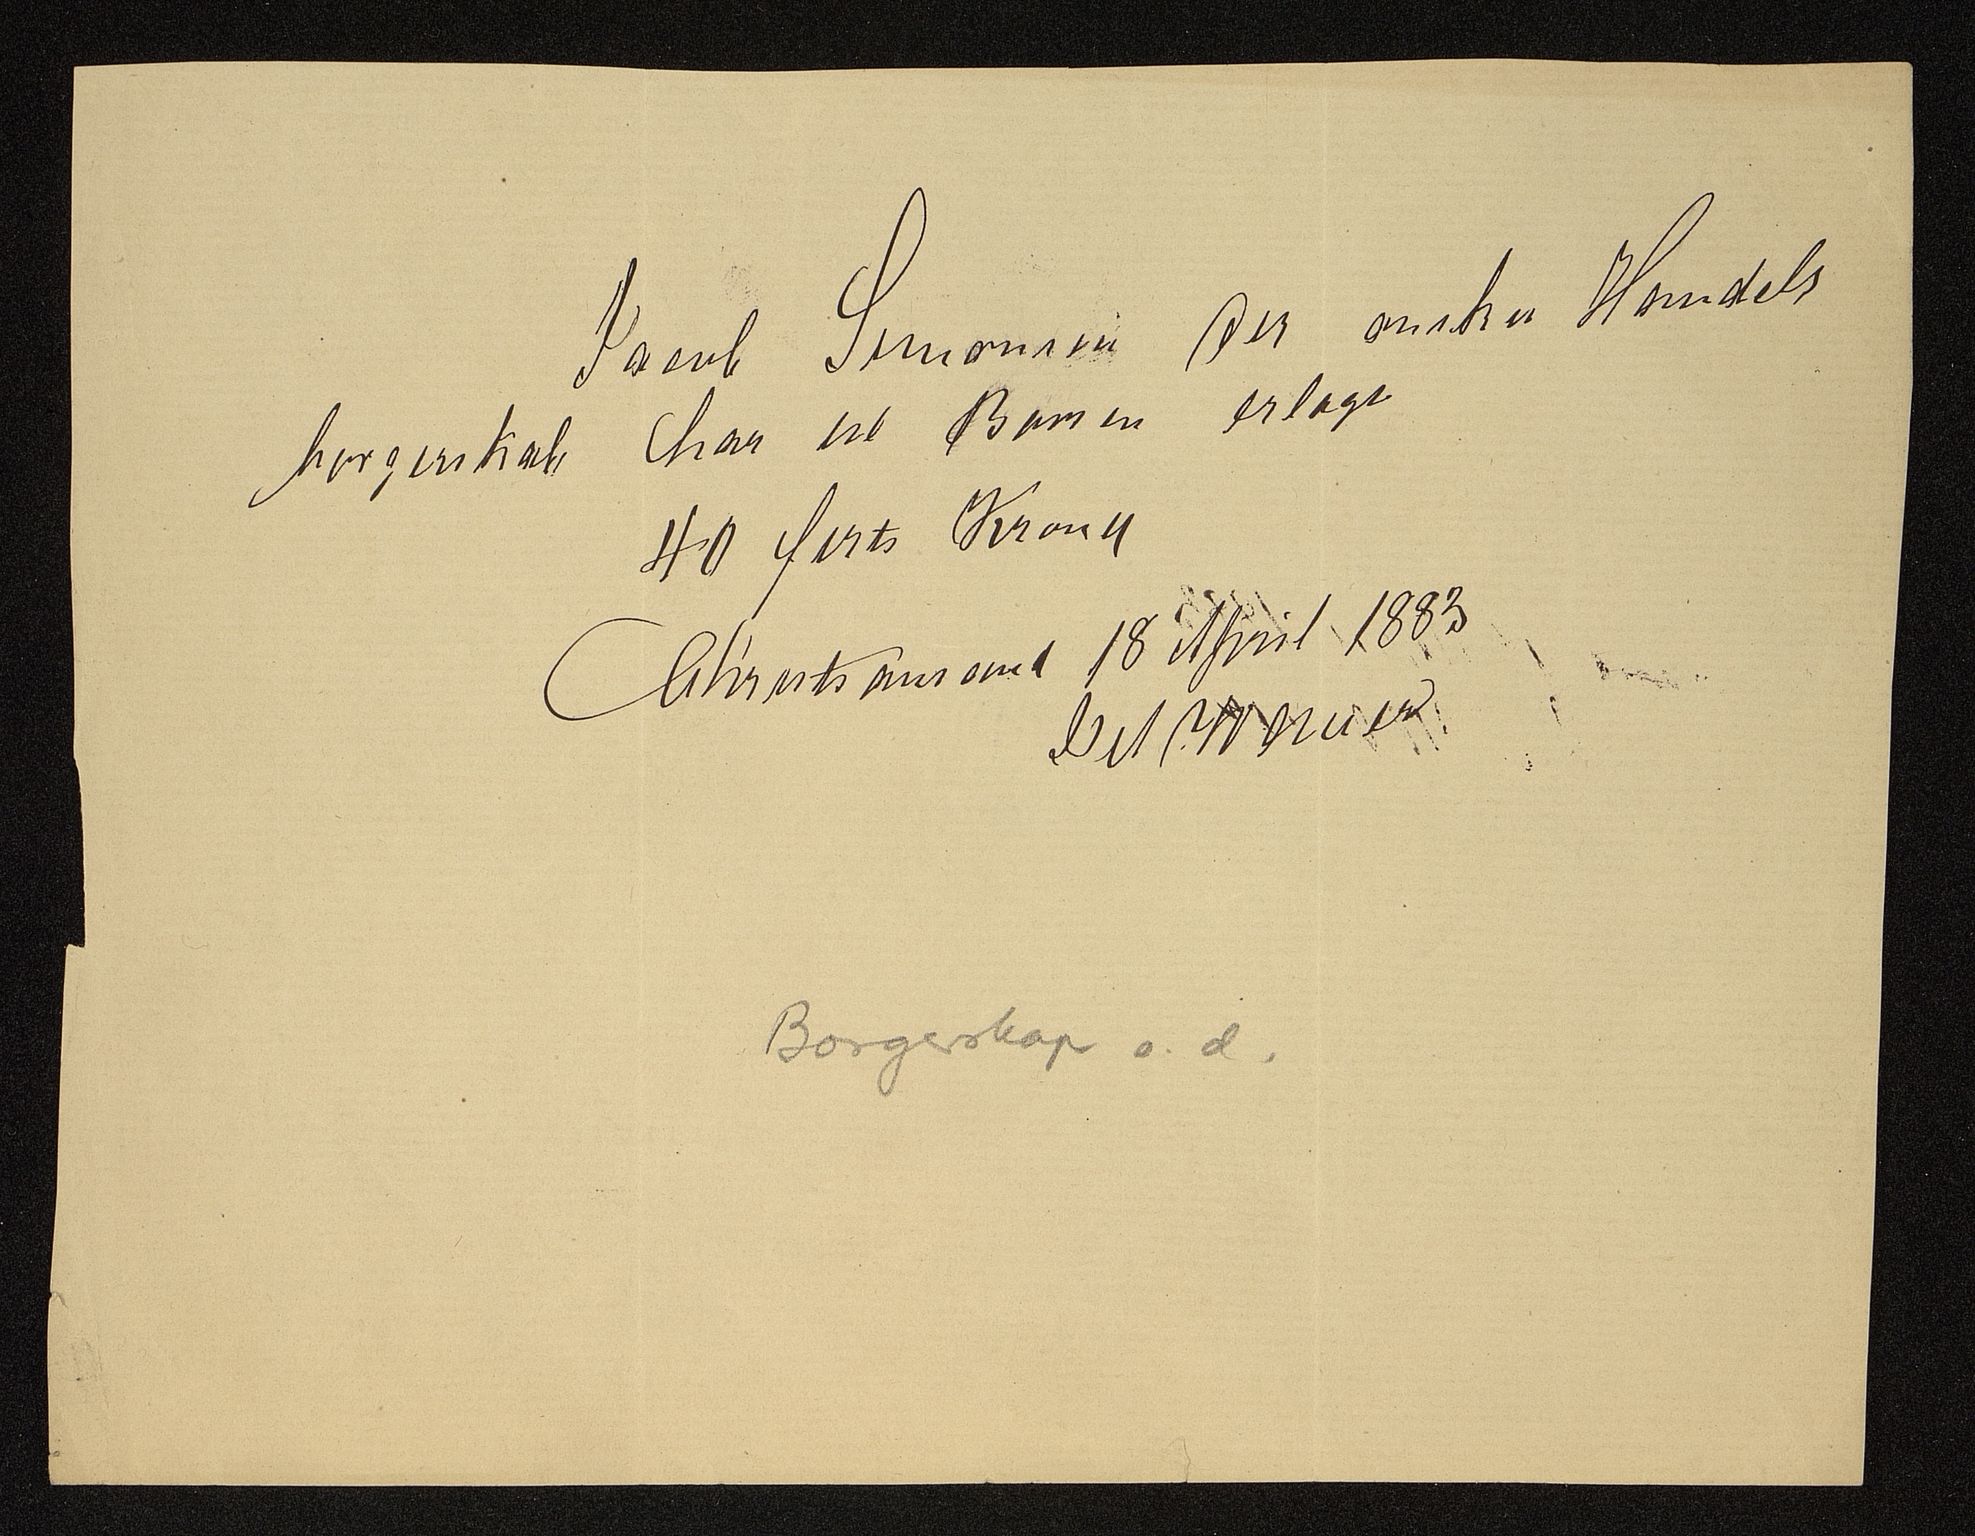 Jacob Simonsen der ønsker Handels
borgerskab har at Bansen erlagt
40 firti Kroner
Christiansand 18 April 1883
Borgerskap o. d.